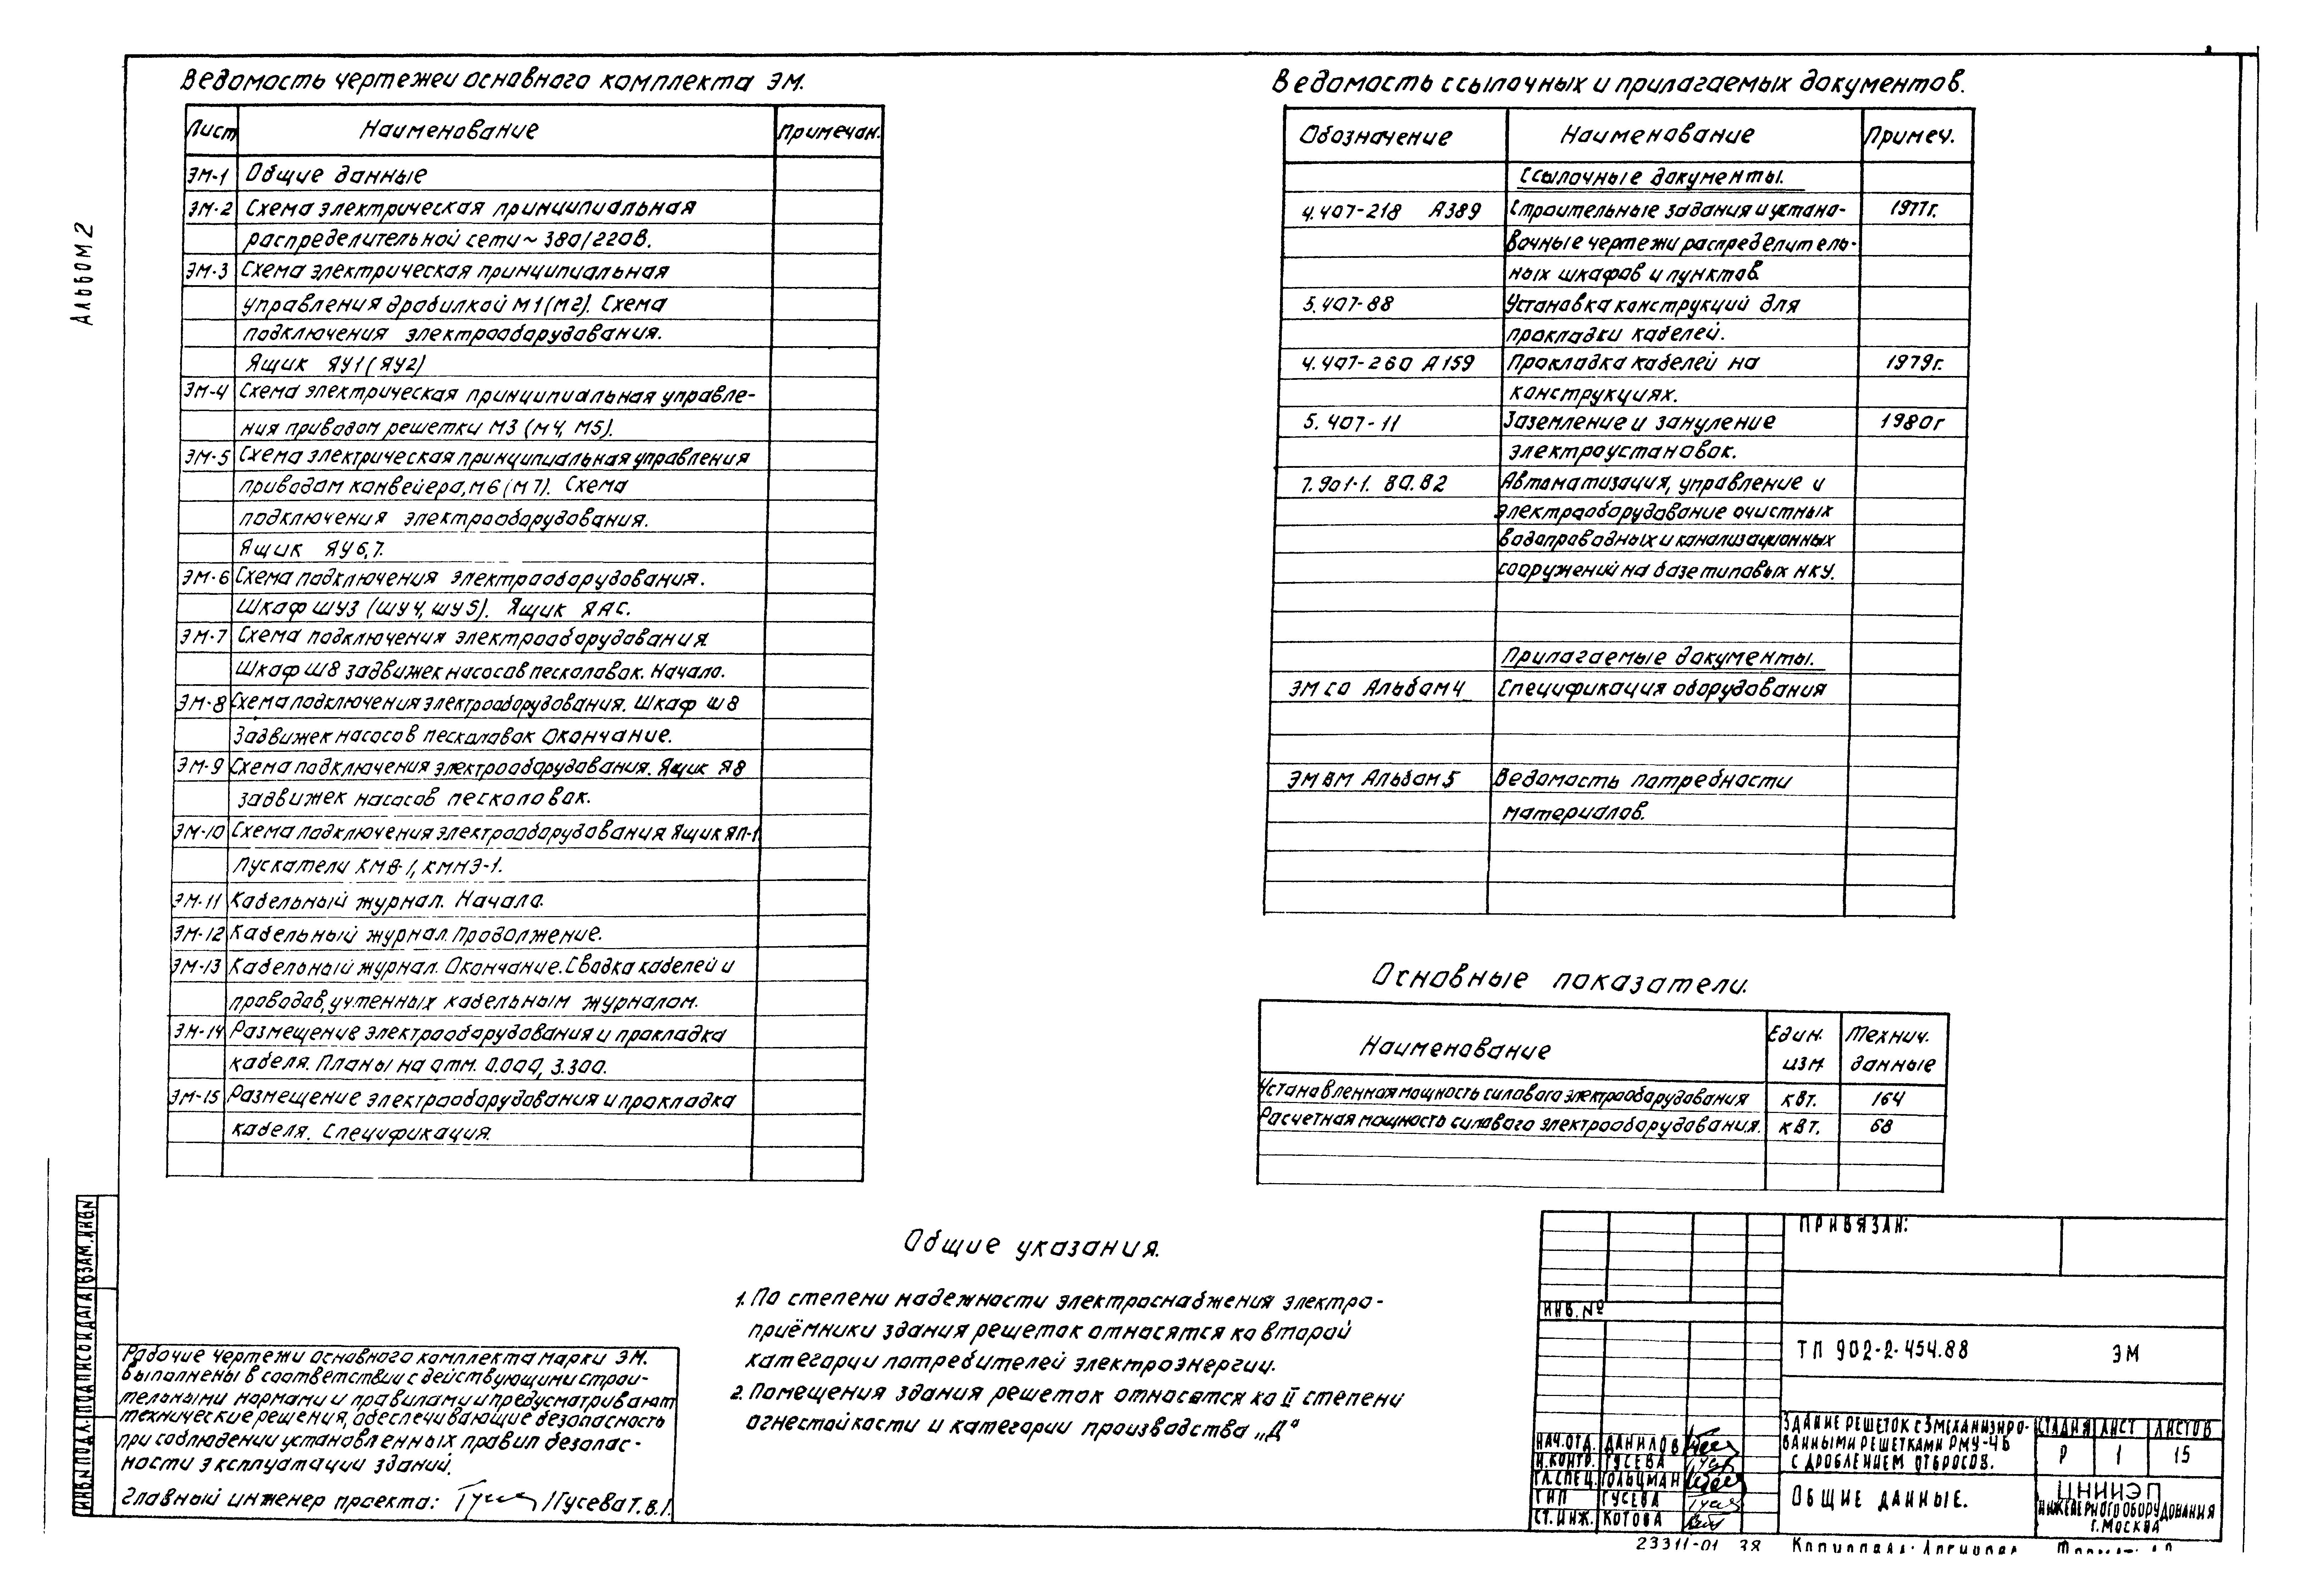 АЛЬБОМ 2
Ведомость чертежей основного комплекта ЭМ.
Лист Наименование Примечан.
ЭМ-1 Общие данные
ЭМ-2 Схема электрическая принципиальная
распределительной сети ~ 380/220В.
ЭМ-3 Схема электрическая принципиальная
управления дробилкой М1 (М2). Схема
подключения электрооборудования.
Ящик ЯУ1 (ЯУ2)
ЭМ-4 Схема электрическая принципиальная управле-
ния приводом решетки М3 (М4, М5).
ЭМ-5 Схема электрическая принципиальная управления
приводом конвейера, М6 (М7). Схема
подключения электрооборудования.
Ящик ЯУ6,7.
ЭМ-6 Схема подключения электрооборудования.
Шкаф ШУ3 (ШУ4, ШУ5). Ящик ЯАС.
ЭМ-7 Схема подключения электрооборудования.
Шкаф Ш8 задвижек насосов песколовок. Начало.
ЭМ-8 Схема подключения электрооборудования. Шкаф Ш8
Задвижек насосов песколовок Окончание.
ЭМ-9 Схема подключения электрооборудования. Ящик Я8
задвижек насосов песколовок.
ЭМ-10 Схема подключения электрооборудования Ящик ЯП-1.
Пускатели КМВ-1, КМНЭ-1.
ЭМ-11 Кабельный журнал. Начало.
ЭМ-12 Кабельный журнал. Продолжение.
ЭМ-13 Кабельный журнал. Окончание. Сводка кабелей и
проводов, учтенных кабельным журналом.
ЭМ-14 Размещение электрооборудования и прокладка
кабеля. Планы на отм. 0.000, 3.300.
ЭМ-15 Размещение электрооборудования и прокладка
кабеля. Спецификация.
Ведомость ссылочных и прилагаемых документов.
Обозначение Наименование Примеч.
Ссылочные документы.
4.407-218 А389 Строительные задания и устано- 1977г.
вочные чертежи распределитель-
ных шкафов и пунктов
5.407-88 Установка конструкций для
прокладки кабелей.
4.407-260 А159 Прокладка кабелей на 1979г.
конструкциях.
5.407-11 Заземление и зануление 1980г
электроустановок.
7.901-1. 80.82 Автоматизация, управление и
электрооборудование очистных
водопроводных и канализационных
сооружений на базе типовых НКУ.
Прилагаемые документы.
ЭМ СО Альбом 4 Спецификация оборудования
ЭМ ВМ Альбом 5 Ведомость потребности
материалов.
Основные показатели.
Наименование Един. изм Технич. данные
Установленная мощность силового электрооборудования кВт. 164
Расчетная мощность силового электрооборудования. кВт. 68
Общие указания.
1. По степени надежности электроснабжения электро-
приёмники здания решеток относятся ко второй
категории потребителей электроэнергии.
2. Помещения здания решеток относятся ко II степени
огнестойкости и категории производства „Д"
Рабочие чертежи основного комплекта марки ЭМ.
выполнены в соответствии с действующими строи-
тельными нормами и правилами и предусматривают
технические решения, обеспечивающие безопасность
при соблюдении установленных правил безопас-
ности эксплуатации зданий.
Главный инженер проекта: /Гусева Т.В./
ИНВ.N ПОДЛ. ПОДПИСЬ И ДАТА ВЗАМ.ИНВ.N
ПРИВЯЗАН:
ИНВ. №
ТП 902-2-454.88 ЭМ
НАЧ.ОТД. ДАНИЛОВ
Н.КОНТР. ГУСЕВА
ГЛ.СПЕЦ. ГОЛЬЦМАН
ГИП ГУСЕВА
СТ.ИНЖ. КОТОВА
ЗДАНИЕ РЕШЕТОК С 3 МЕХАНИЗИРО-
ВАННЫМИ РЕШЕТКАМИ РМУ-4Б
С ДРОБЛЕНИЕМ ОТБРОСОВ.
СТАДИЯ ЛИСТ ЛИСТОВ
Р 1 15
ОБЩИЕ ДАННЫЕ.
ЦНИИЭП
ИНЖЕНЕРНОГО ОБОРУДОВАНИЯ
Г. МОСКВА
23311-01 38